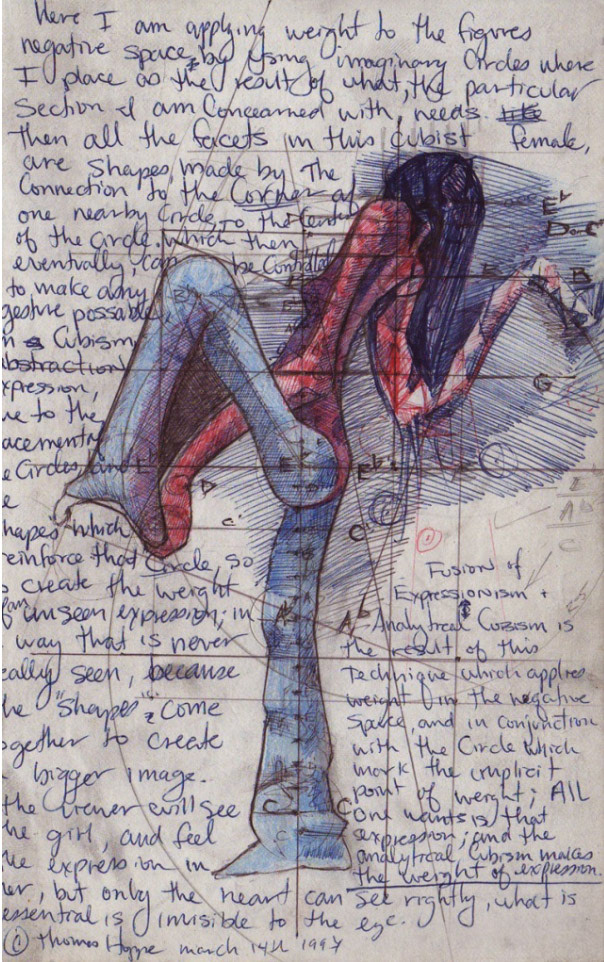 Here I am applying weight to the figures
negative space by using imaginary Circles where
I place as the result of what, the particular
Section I am Concearned with, needs.
then all the facets in this Cubist female,
are shapes made by The
Connection to the Corner of
one nearby Circle, to the Center
of the Circle, which then
eventually, can be Controlled
to make any
gesture possable
n Cubism
bstraction
xpression,
ue to the
acement
e Circles, and
e
hapes which
einforce that Circle, so
create the weight
of unseen expression; in
way that is never
eally seen, because
he "Shapes" Come
ogether to create
bigger image.
the viewer will see
he girl, and feel
he expression in
er, but only the heart can see rightly, what is
essential is invisible to the eye.
© Thomas Hoppe march 14th 1997
Fusion of
Expressionism +
Analytical Cubism is
the result of this
technique which applies
weight in the negative
space, and in conjunction
with the Circle which
mark the implicit
point of weight; All
one wants is that
expression; and the
analytical Cubism makes
the weight of expression.
E♭
E
B
G
D
E
E♭
C
C
A♭
A♭
C
C
C
E
A♭
C